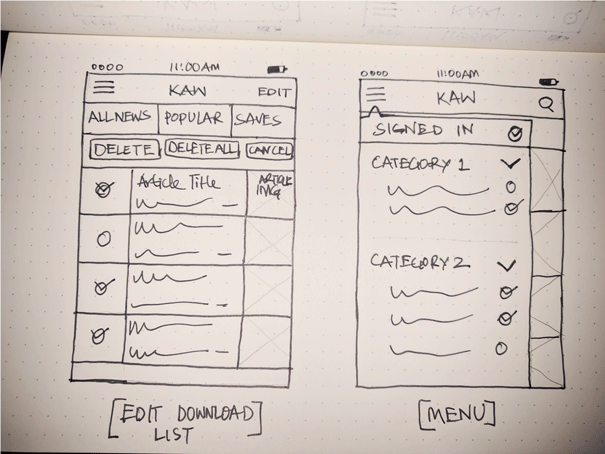 11:00AM
KAW EDIT
ALL NEWS POPULAR SAVES
DELETE DELETE ALL CANCEL
Article Title ARTICLE
IMG
[EDIT DOWNLOAD
LIST]
11:00AM
KAW
SIGNED IN
CATEGORY 1
CATEGORY 2
[MENU]